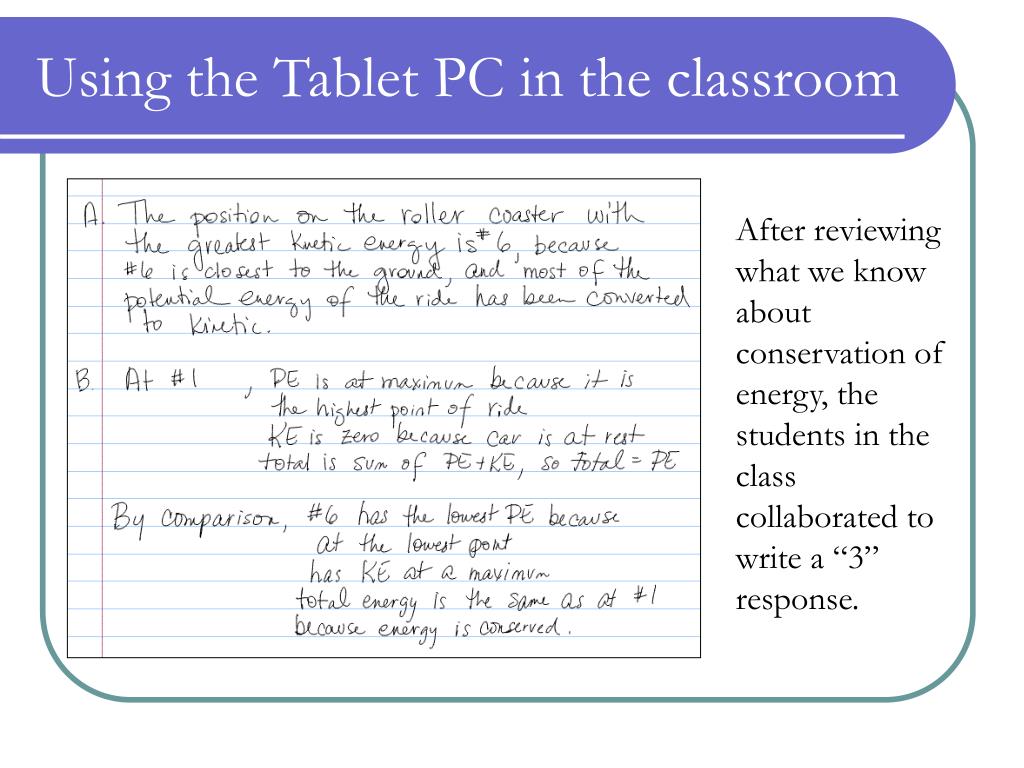 Using the Tablet PC in the classroom
A. The position on the roller coaster with
the greatest kinetic energy is #6, because
#6 is closest to the ground, and most of the
potential energy of the ride has been converted
to kinetic.
B. At #1 , PE is at maximum because it is
the highest point of ride
KE is zero because car is at rest
total is sum of PE+KE, so total = PE
By comparison, #6 has the lowest PE because
at the lowest point
has KE at a maximum
total energy is the same as at #1
because energy is conserved.
After reviewing
what we know
about
conservation of
energy, the
students in the
class
collaborated to
write a “3”
response.